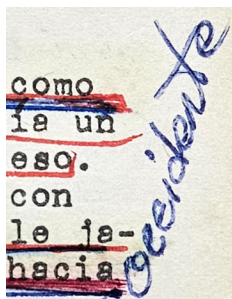 como
ía un
eso.
con
le ja-
hacia
occidente